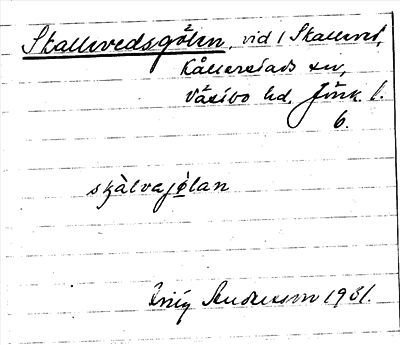 Skallvedsgölen, vid Skallved,
Kållerstads sn,
Västbo hd, Jönk. l.
6.
skàlvajølan
Andersson 1931.